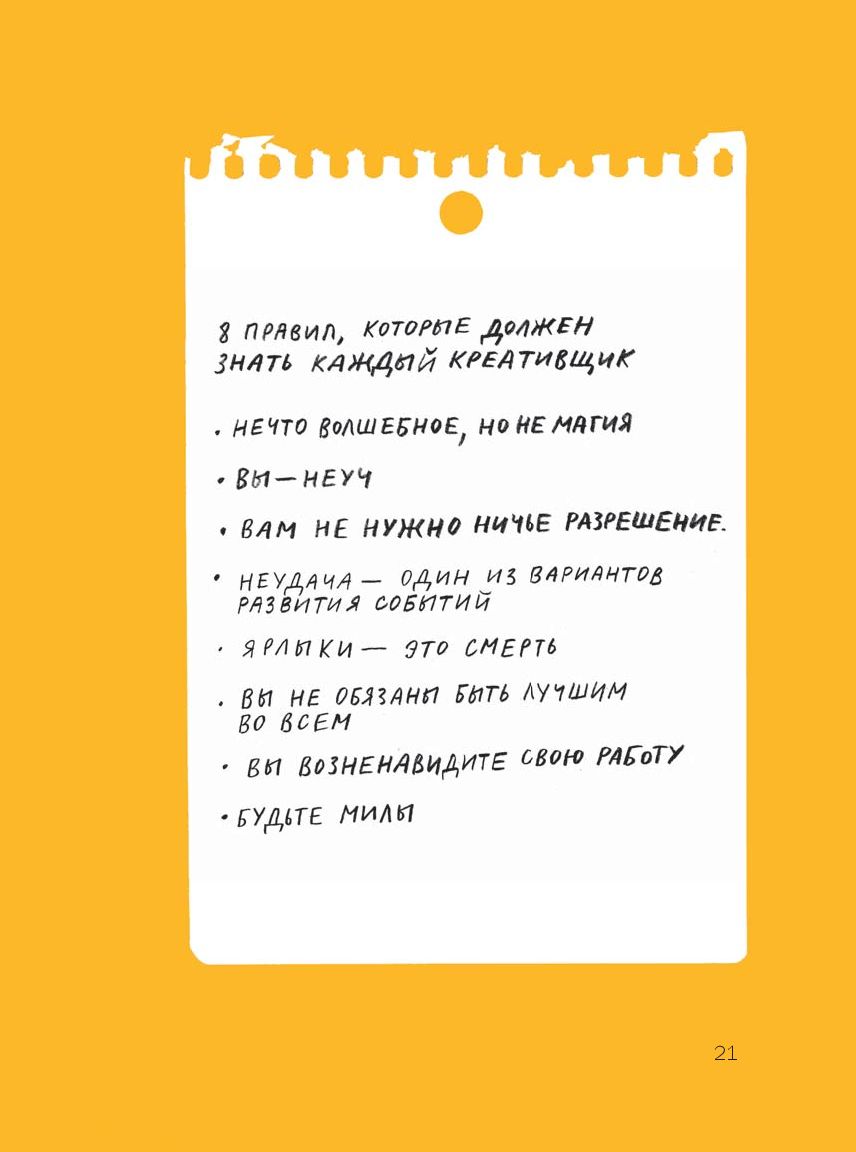 8 ПРАВИЛ, КОТОРЫЕ ДОЛЖЕН
ЗНАТЬ КАЖДЫЙ КРЕАТИВЩИК
• НЕЧТО ВОЛШЕБНОЕ, НО НЕ МАГИЯ
• ВЫ — НЕУЧ
• ВАМ НЕ НУЖНО НИЧЬЕ РАЗРЕШЕНИЕ.
• НЕУДАЧА — ОДИН ИЗ ВАРИАНТОВ
РАЗВИТИЯ СОБЫТИЙ
• ЯРЛЫКИ — ЭТО СМЕРТЬ
• ВЫ НЕ ОБЯЗАНЫ БЫТЬ ЛУЧШИМ
ВО ВСЕМ
• ВЫ ВОЗНЕНАВИДИТЕ СВОЮ РАБОТУ
• БУДЬТЕ МИЛЫ
21